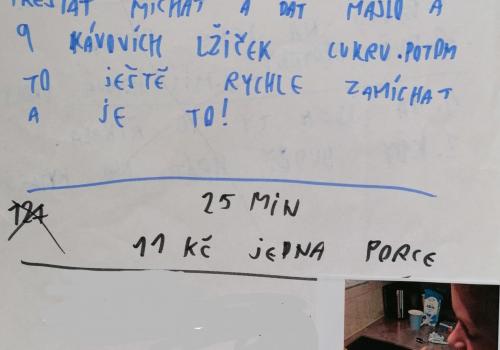 PŘESTAT MÍCHAT A DÁT MÁSLO A
9 KÁVOVÍCH LŽIČEK CUKRU. POTOM
TO JEŠTĚ RYCHLE ZAMÍCHAT
A JE TO!
25 MIN
11 KČ JEDNA PORCE